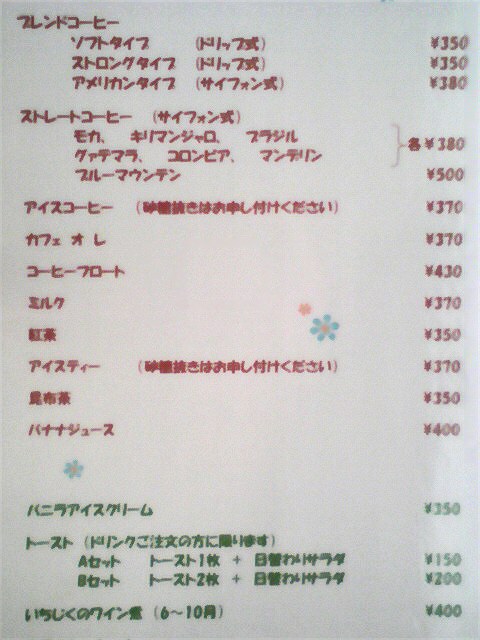 ブレンドコーヒー
ソフトタイプ （ドリップ式） ¥350
ストロングタイプ （ドリップ式） ¥350
アメリカンタイプ （サイフォン式） ¥380
ストレートコーヒー （サイフォン式）
モカ、 キリマンジャロ、 ブラジル
各¥380
グァテマラ、 コロンビア、 マンデリン
ブルーマウンテン ¥500
アイスコーヒー （砂糖抜きはお申し付けください） ¥370
カフェ オ レ ¥370
コーヒーフロート ¥430
ミルク ¥370
紅茶 ¥350
アイスティー （砂糖抜きはお申し付けください） ¥370
昆布茶 ¥350
バナナジュース ¥400
バニラアイスクリーム ¥350
トースト（ドリンクご注文の方に限ります）
Aセット トースト1枚 + 日替わりサラダ ¥150
Bセット トースト2枚 + 日替わりサラダ ¥200
いちじくのワイン煮（6～10月） ¥400